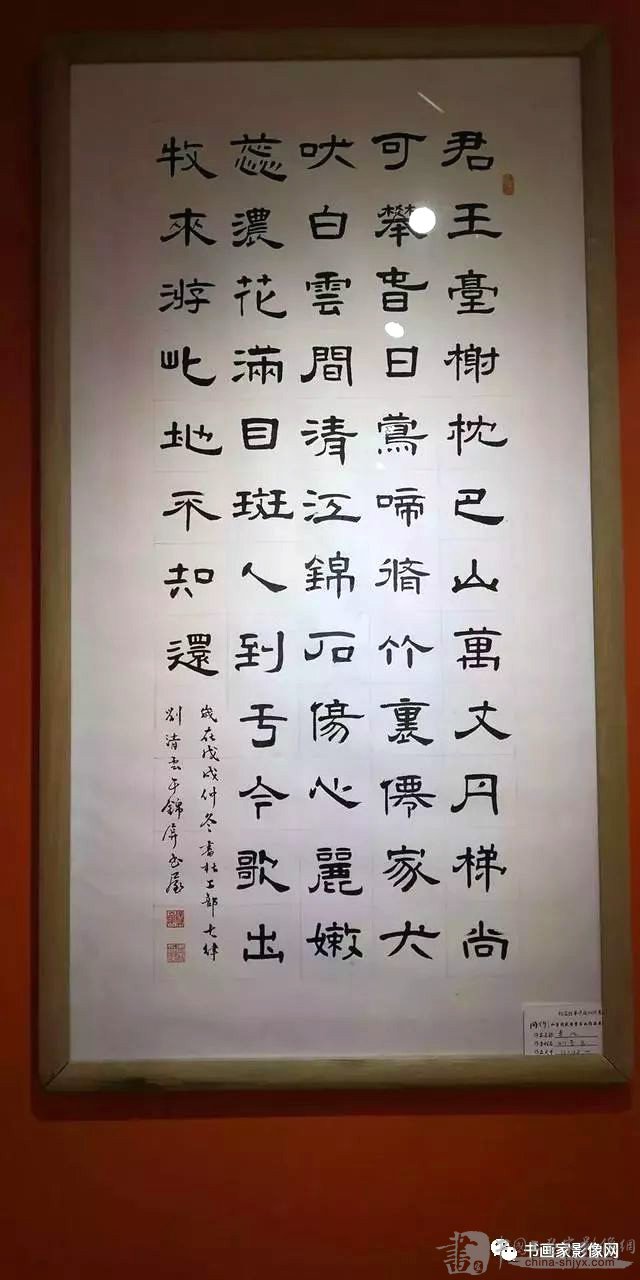 君王臺榭枕巴山萬丈丹梯尚
可攀春日鶯啼脩竹裏僊家犬
吠白雲間清江錦石傷心麗嫩
蕊濃花滿目斑人到于今歌出
牧來游此地不知還
歲在戊戌仲冬書杜工部七律
劉清雲于錦屏書屋
作品名称
作者姓名
作品尺寸
书画家影像网
china-shjyx.com